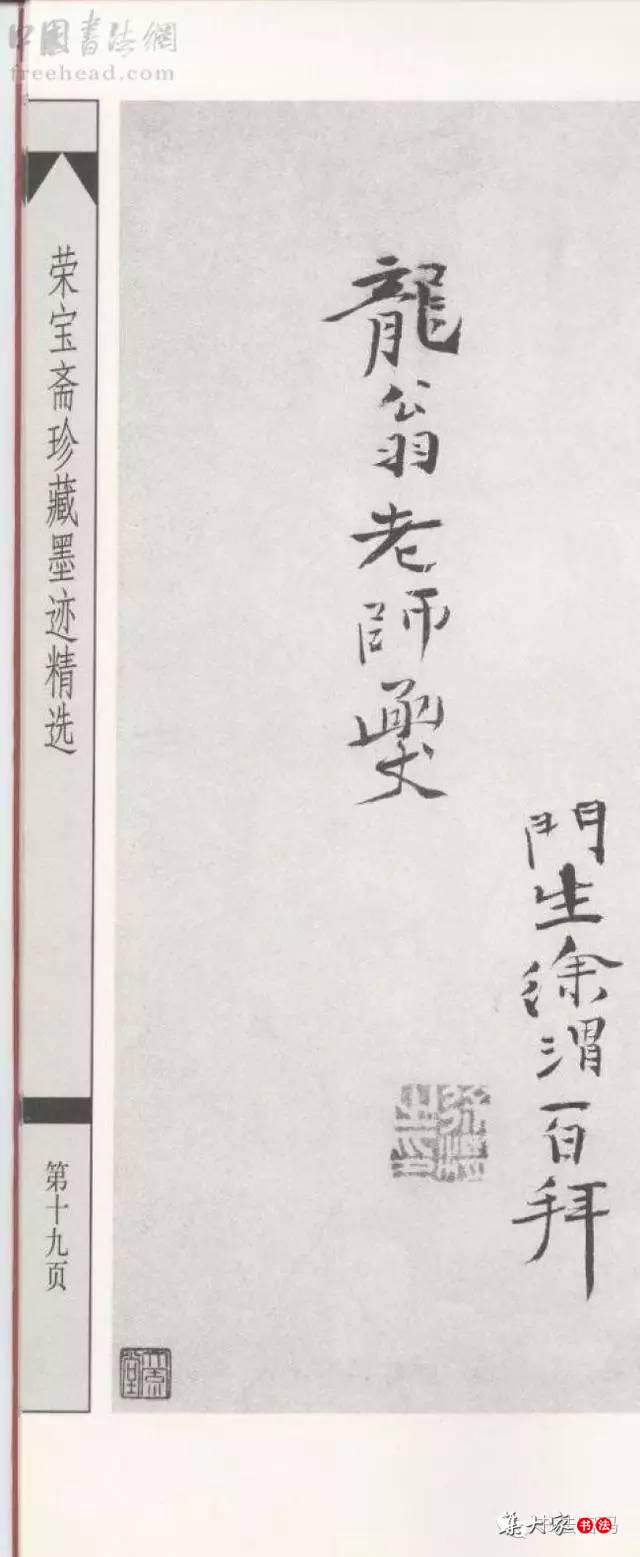 中国书法網
freehead.com
門生徐渭百拜
龍翁老師
荣宝斋珍藏墨迹精选
第十九页
集大家书法